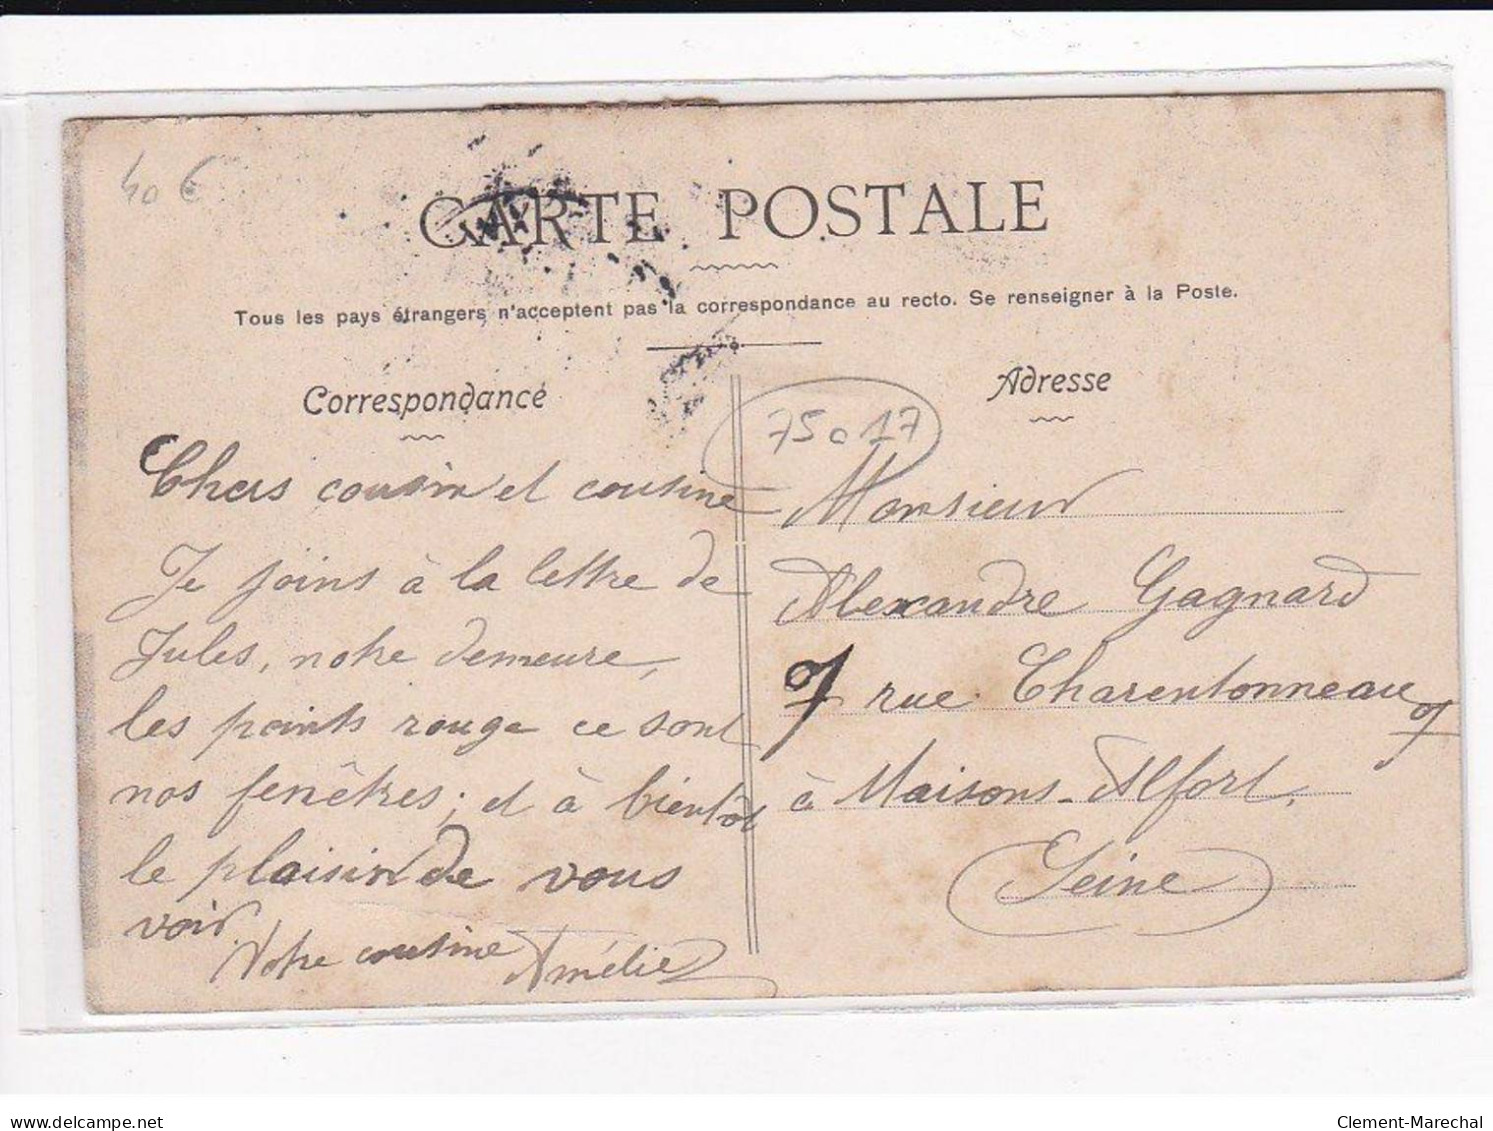 40 €
CARTE POSTALE
Tous les pays étrangers n'acceptent pas la correspondance au recto. Se renseigner à la Poste.
Correspondance
Adresse
75017
Chers cousin et cousine
Je joins à la lettre de
Jules, notre demeure,
les points rouge ce sont
nos fenêtres; et à bientôt
le plaisir de vous
voir
Votre cousine Amélie
Monsieur
Alexandre Gagnard
7 rue Charentonneau 7
à Maisons-Alfort.
Seine
delcampe.net
Clement-Marechal